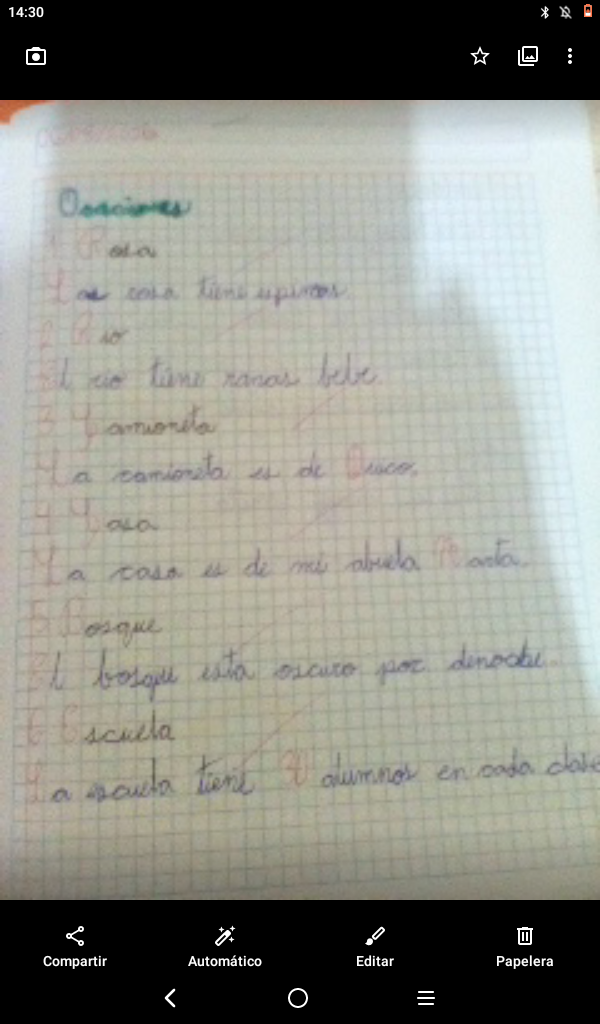 14:30
Oraciones
1 Rosa
Las rosa tiene espinas.
2 Rio
El rio tiene ranas bebe.
3 Camioneta
La camioneta es de
4 Casa
La casa es de mi abuela Marta.
5 Bosque
El bosque esta oscuro por denoche.
6 Escuela
La escuela tiene 30 alumnos en cada clase
Compartir Automático Editar Papelera